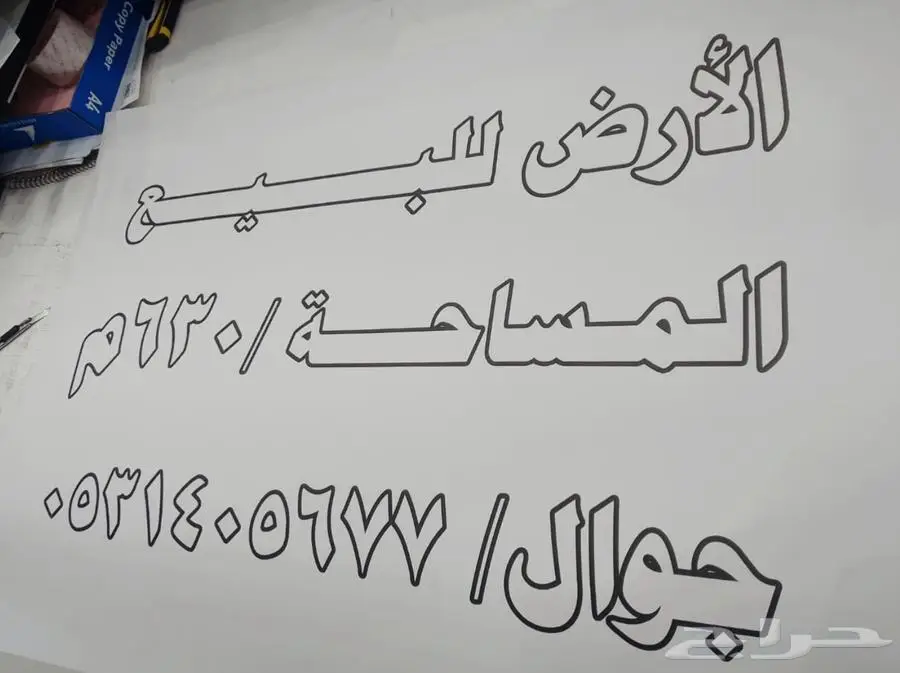 الأرض للبيع
المساحة / ٦٣٠م
جوال / ٠٥٣١٤٠٥٦٧٧
Copy Paper
A4
حراج